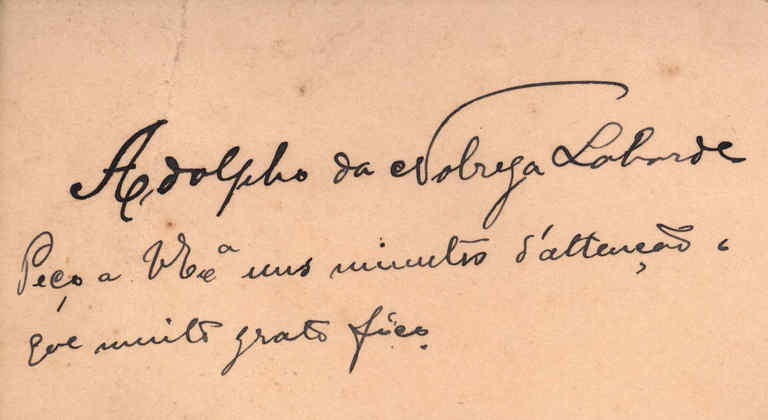 Adolpho da Nobrega Laborde
Peço a V Exª uns minutos d'attenção
que muito grato fico